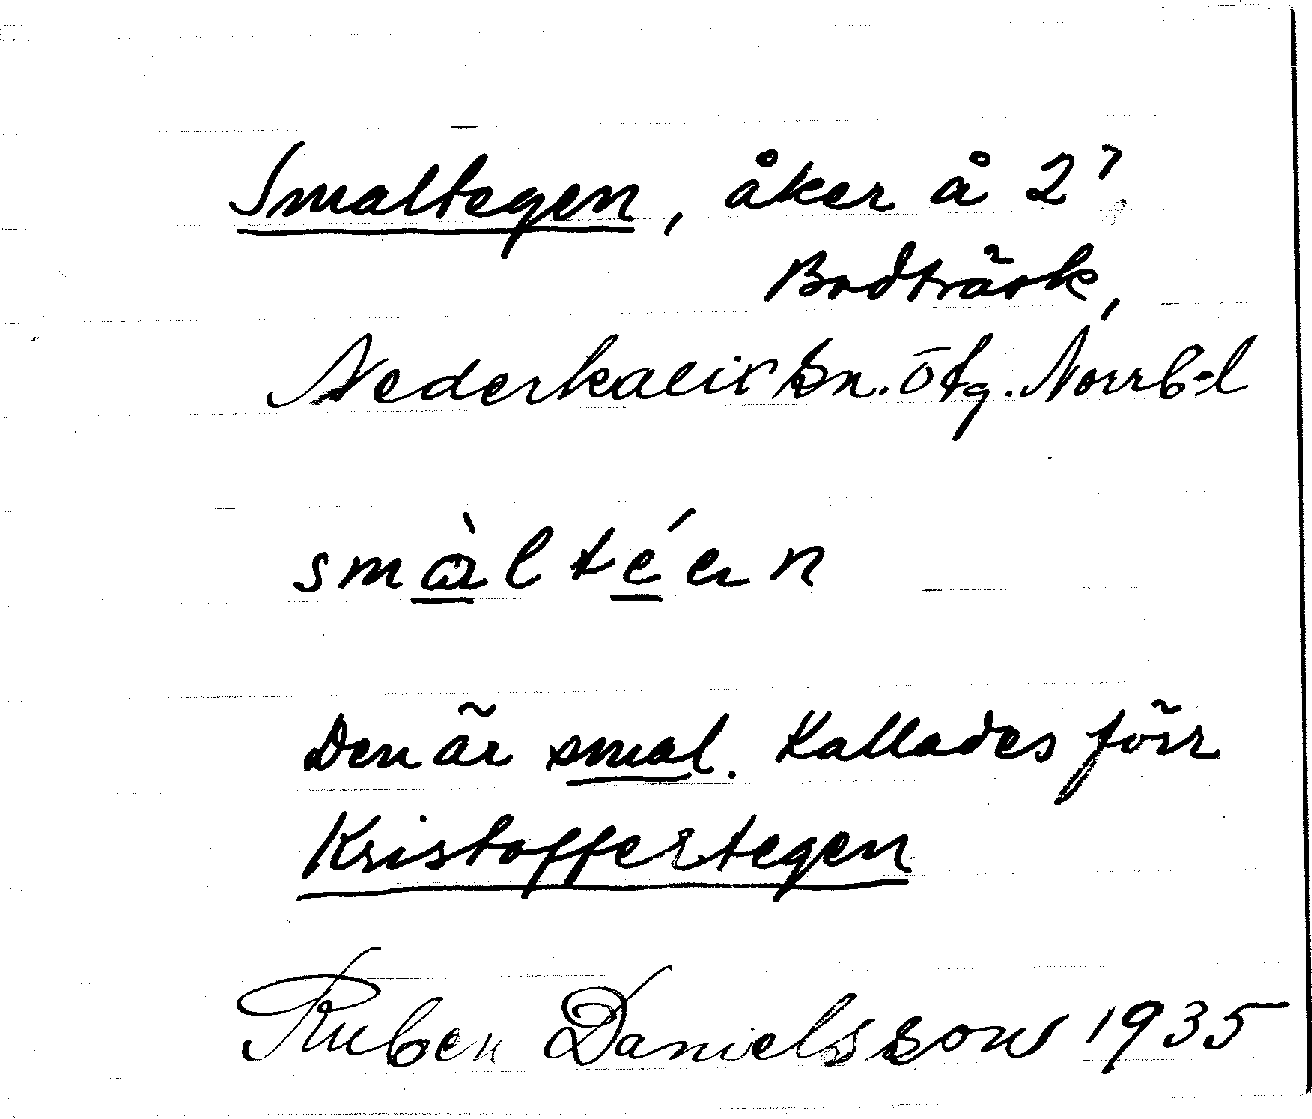 Smaltegen, åker å 2⁷
Bodträsk,
Nederkalix sn. ötg. Norrb-l
smàltéen
Den är smal. Kallades förr
Kristoffertegen
Ruben Danielsson 1935